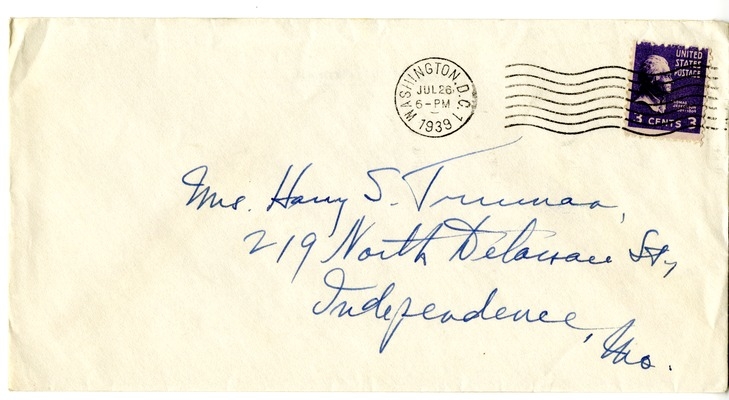 WASHINGTON, D.C. 1
JUL 26
6-PM
1939
UNITED
STATES
POSTAGE
3 CENTS 3
Mrs. Harry S. Truman,
219 North Delaware St.,
Independence,
Mo.